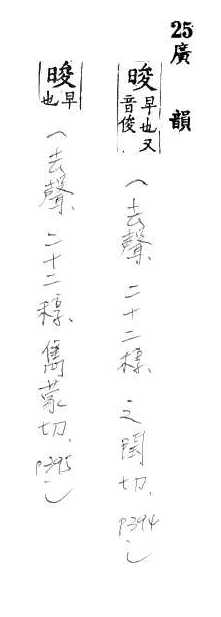 25廣韻
晙早也又音俊.
(去聲、二十二稕、之閏切、P394)
晙早也
(去聲、二十二稕、雋蒙切、P395)